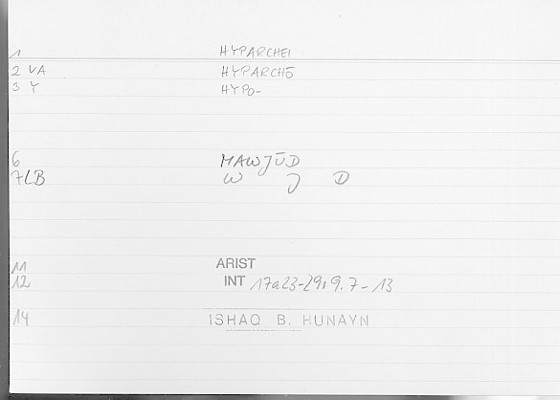 1 HYPARCHEI
2 VA HYPARCHŌ
3 Y HYPO-
6 MAWJŪD
7LB W J D
11 ARIST
12 INT 17a23-29,9.7-13
14 ISHAQ B. HUNAYN